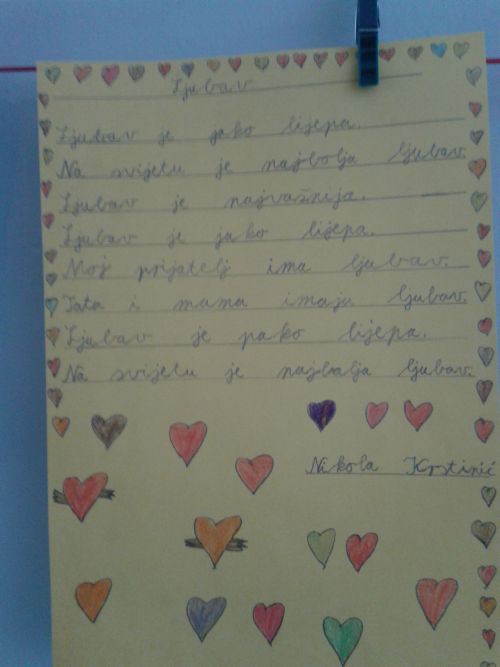 Ljubav
Ljubav je jako lijepa.
Na svijetu je najbolja ljubav.
Ljubav je najvažnija.
Ljubav je jako lijepa.
Moj prijatelj ima ljubav.
Tata i mama imaju ljubav.
Ljubav je jako lijepa.
Na svijetu je najbolja ljubav.
Nikola